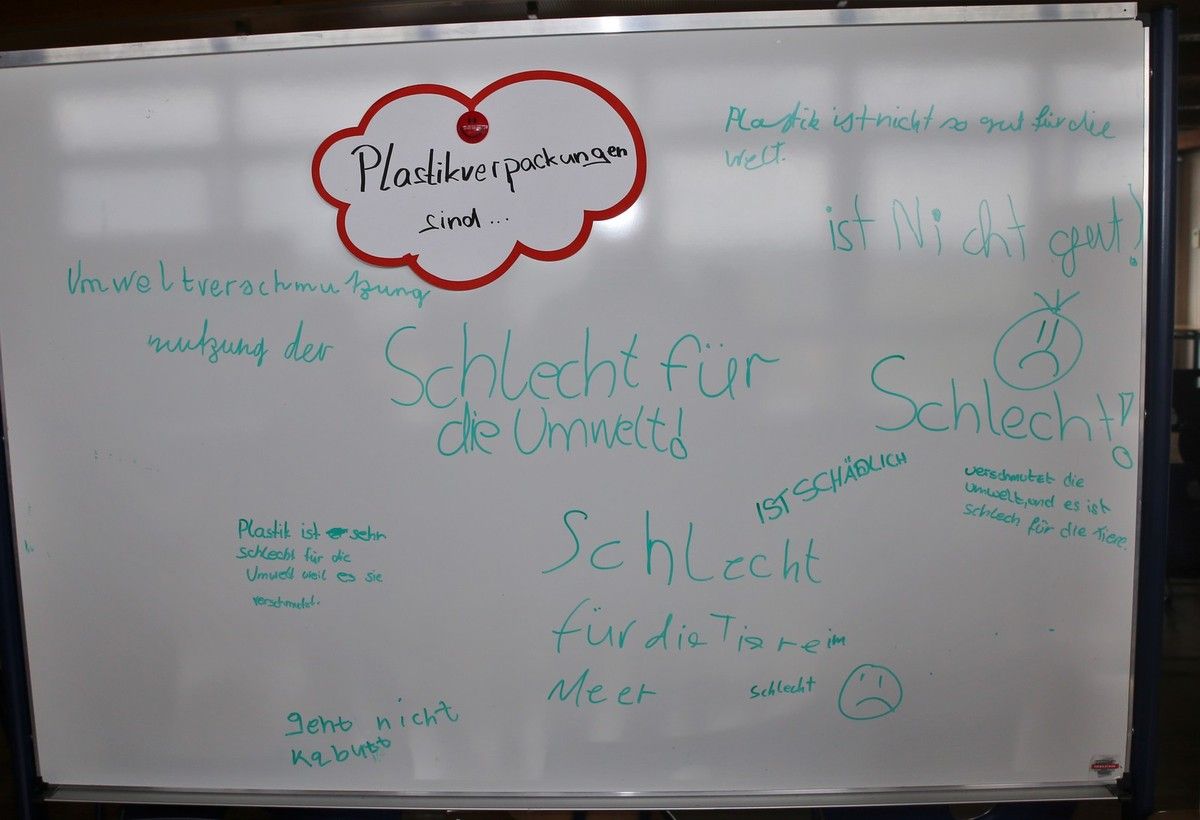 Plastikverpackungen
sind...
Plastik ist nicht so gut für die
Welt.
ist Nicht gut!
Umweltverschmutzung
nutzung der
Schlecht für
die Umwelt!
Schlecht!
IST SCHÄDLICH
verschmutzt die
Umwelt, und es ist
schlech für die Tiere.
Plastik ist sehr
schlecht für die
Umwelt weil es sie
verschmutzt.
Schlecht
für die Tiere im
Meer
schlecht
geht nicht
kabutt